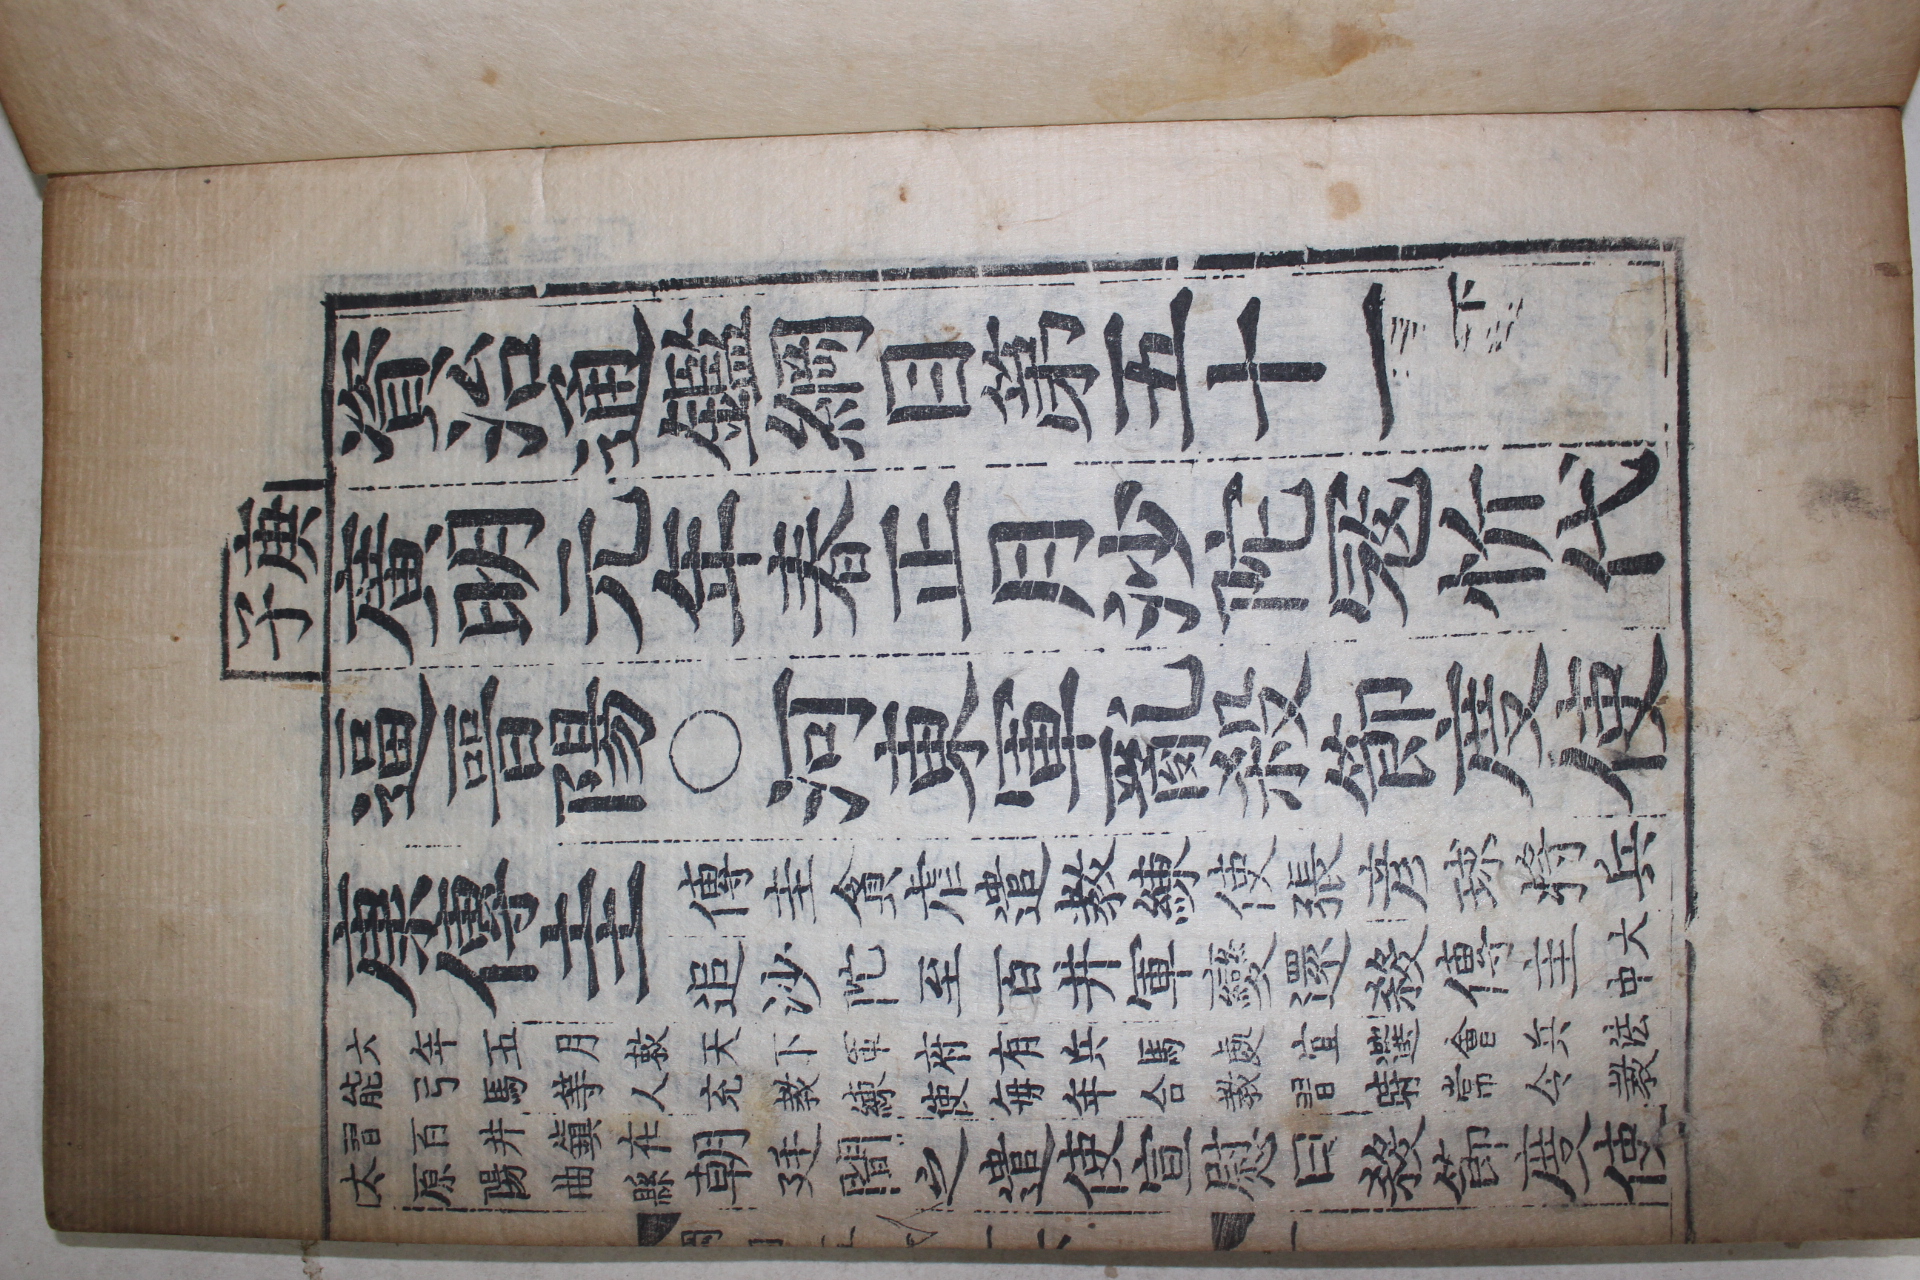 資治通鑑綱目第五十一下
庚子
廣明元年春正月沙陀冦忻代
逼晉陽○河東軍亂殺節度使
康傳圭
傳圭貪虐遣教練使張彦球將兵
追沙陀至百井軍變還殺傳圭大中
六年五月敕天下軍府有兵馬處宜選會兵法
能弓馬等人充教練使每年合教習時常令教
習百井鎮在
太原陽曲縣
朝廷聞之遣使宣慰曰殺節度使